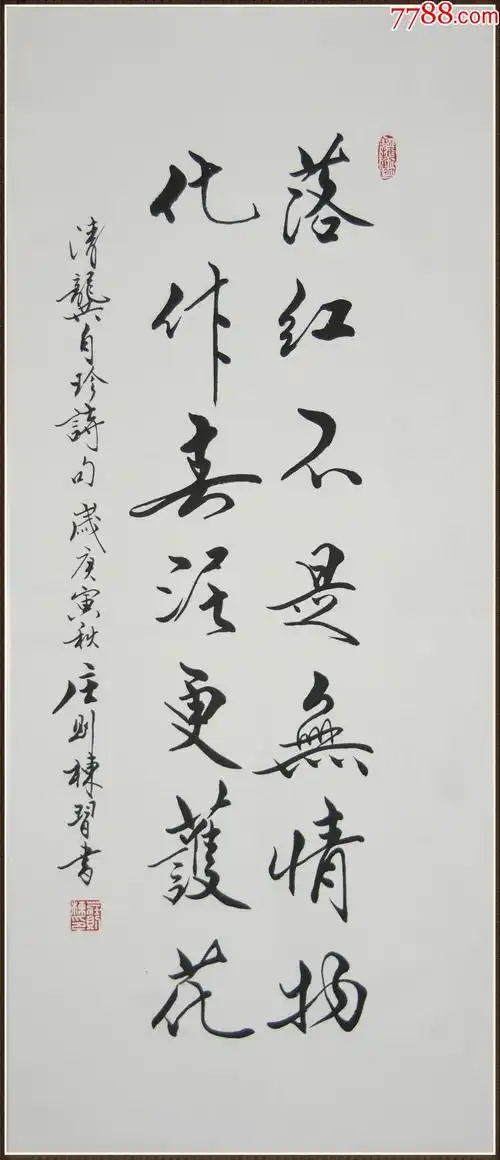 7788.com
落红不是無情物
化作春泥更護花
清龔自珍詩句 歲庚寅秋 庄則棟習書